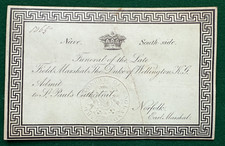 Nave South side.
Funeral of the Late
Field Marshal The Duke of Wellington K.G.
Admit
to St. Paul's Cathedral
Norfolk
Earl Marshal.